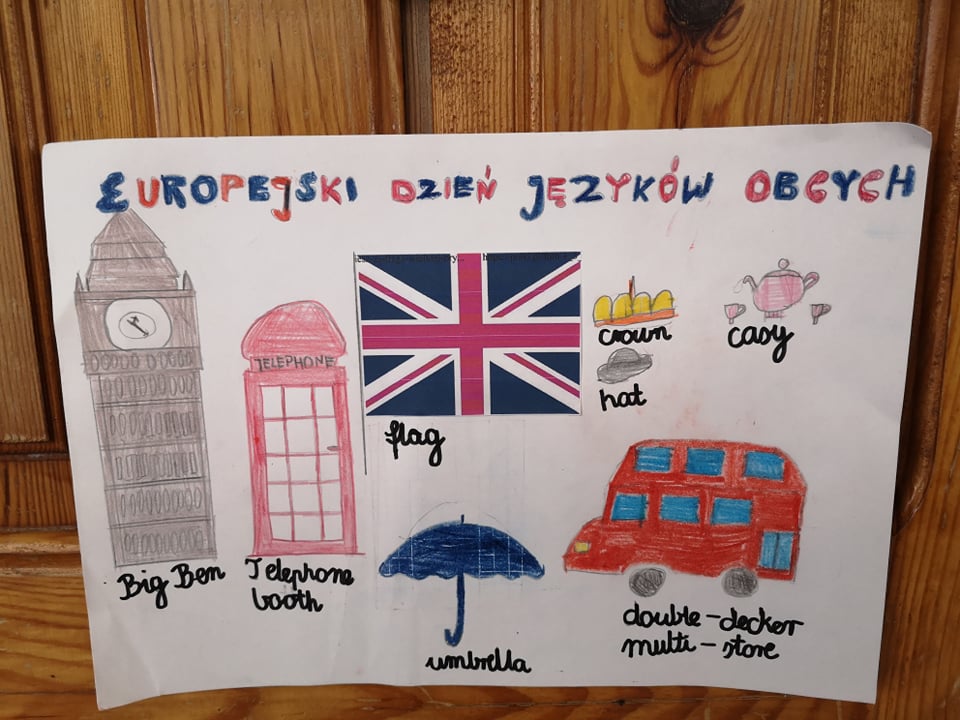 EUROPEJSKI DZIEŃ JĘZYKÓW OBCYCH
TELEPHONE
flag
crown
hat
casy
Big Ben
Telephone
booth
umbrella
double-decker
multi-store